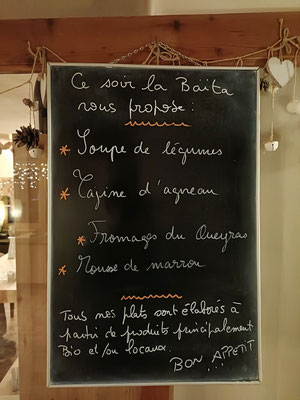 Ce soir la Baïta
vous propose :
* Soupe de légumes
* Tajine d'agneau
* Fromages du Queyras
* Mousse de marron
Tous nos plats sont élaborés à
partir de produits principalement
Bio et/ou locaux.
BON APPETIT...